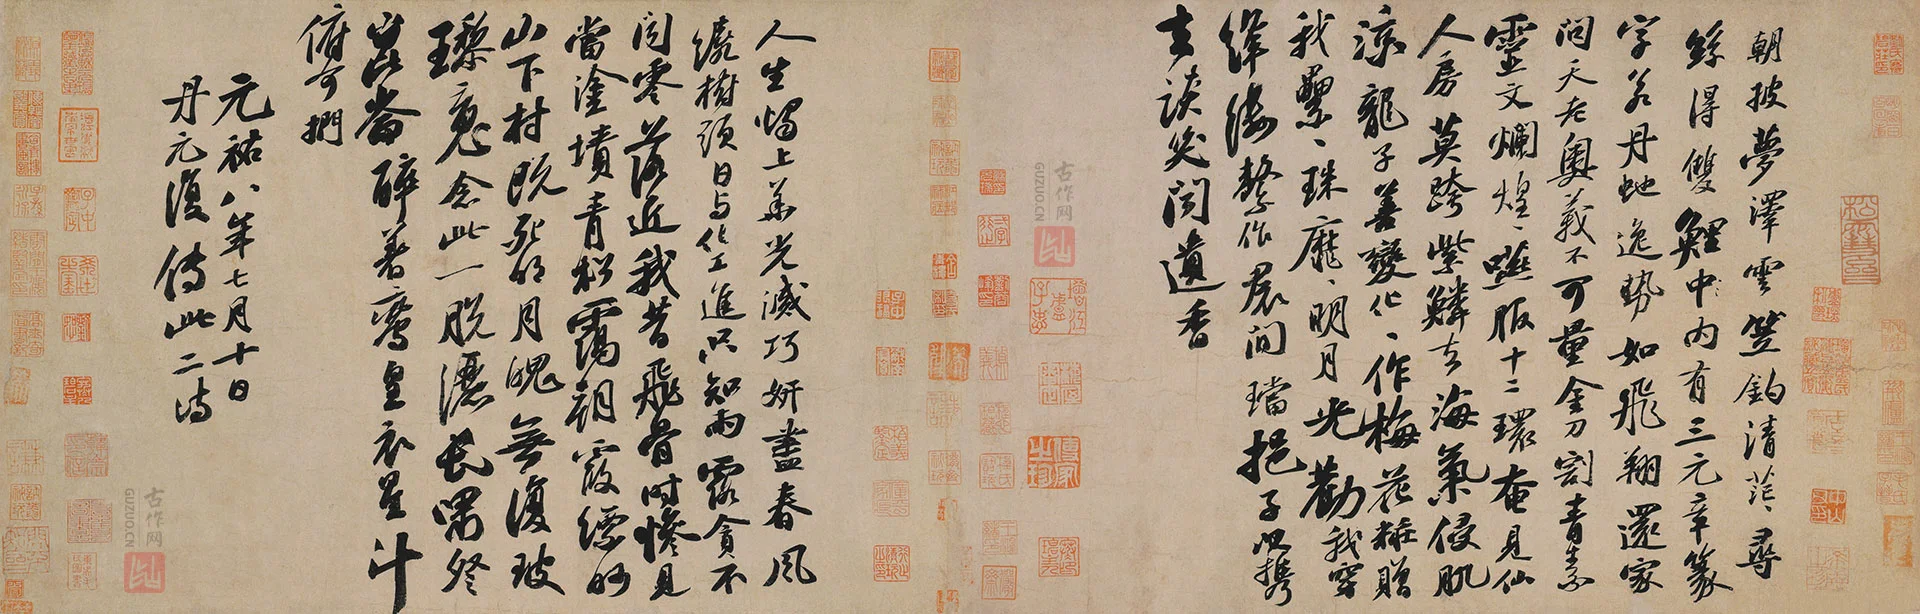 朝披夢澤雲笠釣清茫〻尋
絲得雙鯉中〻內有三元章篆
字若丹蛇逸勢如飛翔還家
問天老奧義不可量金刀割青素
靈文爛煌〻嚥服十二環奄見仙
人房莫跨紫鱗去海氣侵肌
涼龍子善變化〻作梅花糚贈
我纍〻珠靡〻明月光勸我穿
絳縷繫作裾間璫挹子以攜
去談笑聞遺香
人生燭上華光滅巧妍盡春風
繞樹頭日與化工進只知雨露貪不
聞零落近我昔飛骨時慘見
當塗墳青松靄朝霞縹緲
山下村既死明月魄無復玻
瓈魂念此一脫灑長嘯登
崑崙醉著鸞皇衣星斗
俯可捫
元祐八年七月十日
丹元復傳此二詩
古作网
GUZUO.CN
古作网
GUZUO.CN